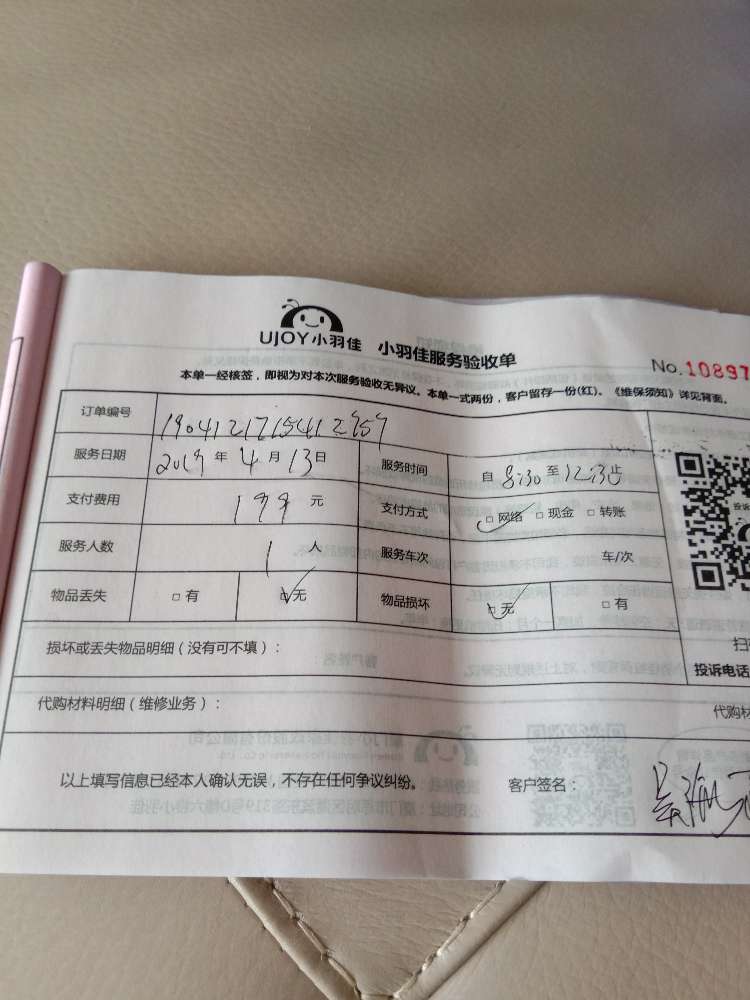 UJOY小羽佳 小羽佳服务验收单
No.10897
本单一经核签，即视为对本次服务验收无异议。本单一式两份，客户留存一份(红)。《维保须知》详见背面。
订单编号
服务日期 2019 年 4 月 13 日 服务时间 自 8:30 至 12:30 止
支付费用 199 元 支付方式 □网络 □现金 □转账
服务人数 1 人 服务车次 车/次
物品丢失 □有 □无 物品损坏 □无 □有
损坏或丢失物品明细（没有可不填）：
投诉电话
代购材料明细（维修业务）：
以上填写信息已经本人确认无误，不存在任何争议纠纷。 客户签名：